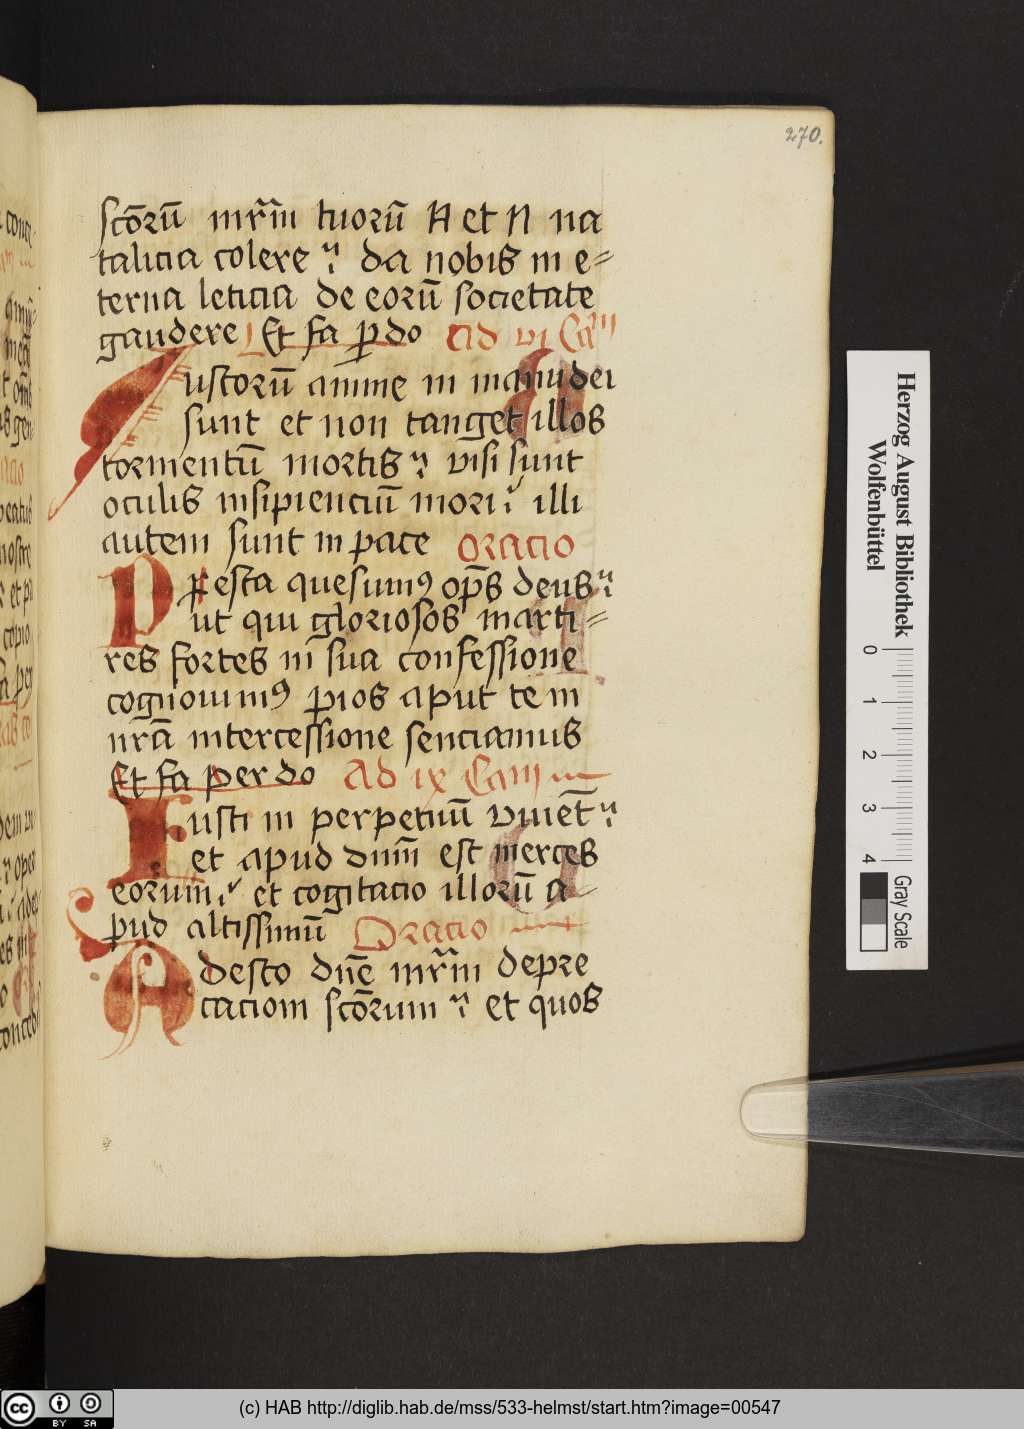 270.
sctōrū mr̄m̄ tuorū N et N na
talicia colere ؛ da nobis in e=
terna leticia de eorū societate
gaudere Et fa p̱do ad vi Ca᷑m
Iustorū anime in manu dei
sunt et non tanget illos
tormentū mortis ؛ visi sunt
oculis insipienciū mori ؛ illi
autem sunt in pace Oracio
Presta quesumꝰ op̄s deus ؛
ut qui gloriosos marti=
res fortes in sua confessione
cognouimꝰ pios aput te in
nr̄a intercessione senciamus
Et fa per do Ad ix Cam
Iusti in perpetuū viuēt ؛
et apud dnm̄ est merces
eorum ؛ et cogitacio illorū a=
pud altissimū Oracio
Adesto dn̄e mr̄m depre
cacioni scōrum ؛ et quos
Herzog August Bibliothek
Wolfenbüttel
0 1 2 3 4
Gray Scale
cc BY SA
(c) HAB http://diglib.hab.de/mss/533-helmst/start.htm?image=00547